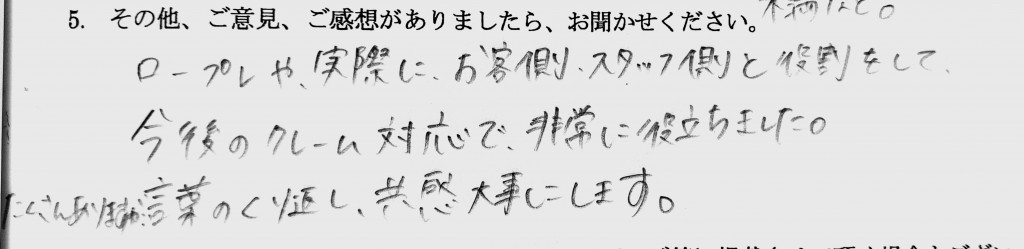 不満など。
5. その他、ご意見、ご感想がありましたら、お聞かせください。
ロープレや、実際に、お客側、スタッフ側と役割をして、
今後のクレーム対応で、非常に役立ちました。
たくさんありますが、言葉のくり返し、共感大事にします。